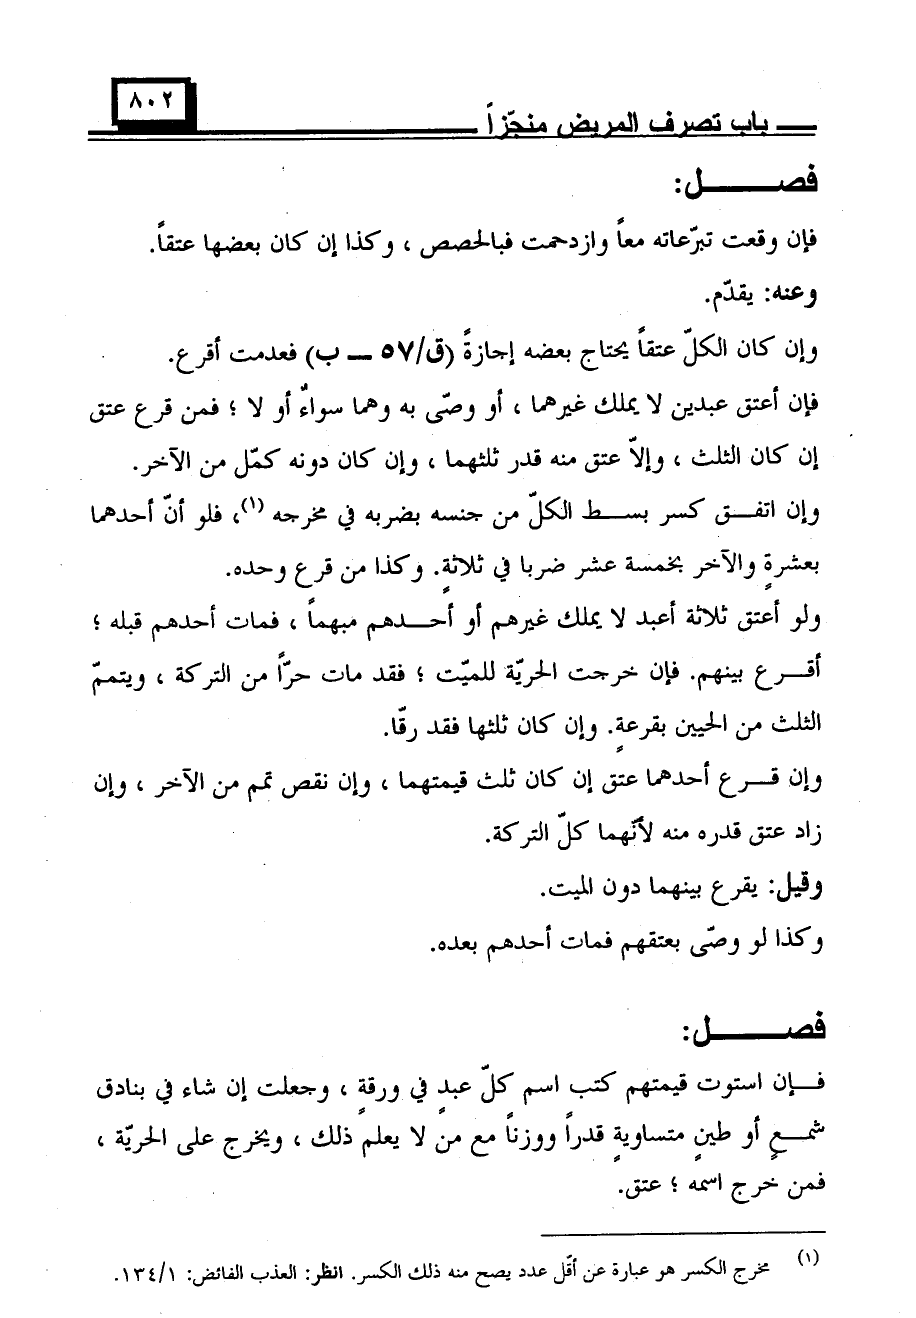 باب تصرف المريض منجّزاً ٨٠٢
فصـــــل:
فإن وقعت تبرّعاته معاً وازدحمت فبالحصص ، وكذا إن كان بعضها عتقاً.
وعنه: يقدّم.
وإن كان الكلّ عتقاً يحتاج بعضه إجازةً (ق/٥٧ ــ ب) فعدمت أقرع.
فإن أعتق عبدين لا يملك غيرهما ، أو وصّى به وهما سواءٌ أو لا ؛ فمن قرع عتق
إن كان الثلث ، وإلاّ عتق منه قدر ثلثهما ، وإن كان دونه كمّل من الآخر.
وإن اتفـق كسر بسـط الكلّ من جنسه بضربه في مخرجه (١)، فلو أنّ أحدهما
بعشرةٍ والآخر بخمسة عشر ضربا في ثلاثةٍ. وكذا من قرع وحده.
ولو أعتق ثلاثة أعبد لا يملك غيرهم أو أحـدهم مبهماً ، فمات أحدهم قبله ؛
أقـرع بينهم. فإن خرجت الحريّة للميّت ؛ فقد مات حرّاً من التركة ، ويتممّ
الثلث من الحيين بقرعةٍ. وإن كان ثلثها فقد رقّا.
وإن قـرع أحدهما عتق إن كان ثلث قيمتهما ، وإن نقص تمم من الآخر ، وإن
زاد عتق قدره منه لأنّهما كلّ التركة.
وقيل: يقرع بينهما دون الميت.
وكذا لو وصّى بعتقهم فمات أحدهم بعده.
فصـــــل:
فـإن استوت قيمتهم كتب اسم كلّ عبدٍ في ورقةٍ ، وجعلت إن شاء في بنادق
شمـعٍ أو طينٍ متساويةٍ قدراً ووزناً مع من لا يعلم ذلك ، ويخرج على الحريّة ،
فمن خرج اسمه ؛ عتق.
(١) مخرج الكسر هو عبارة عن أقّل عدد يصح منه ذلك الكسر. انظر: العذب الفائض: ١٣٤/١.